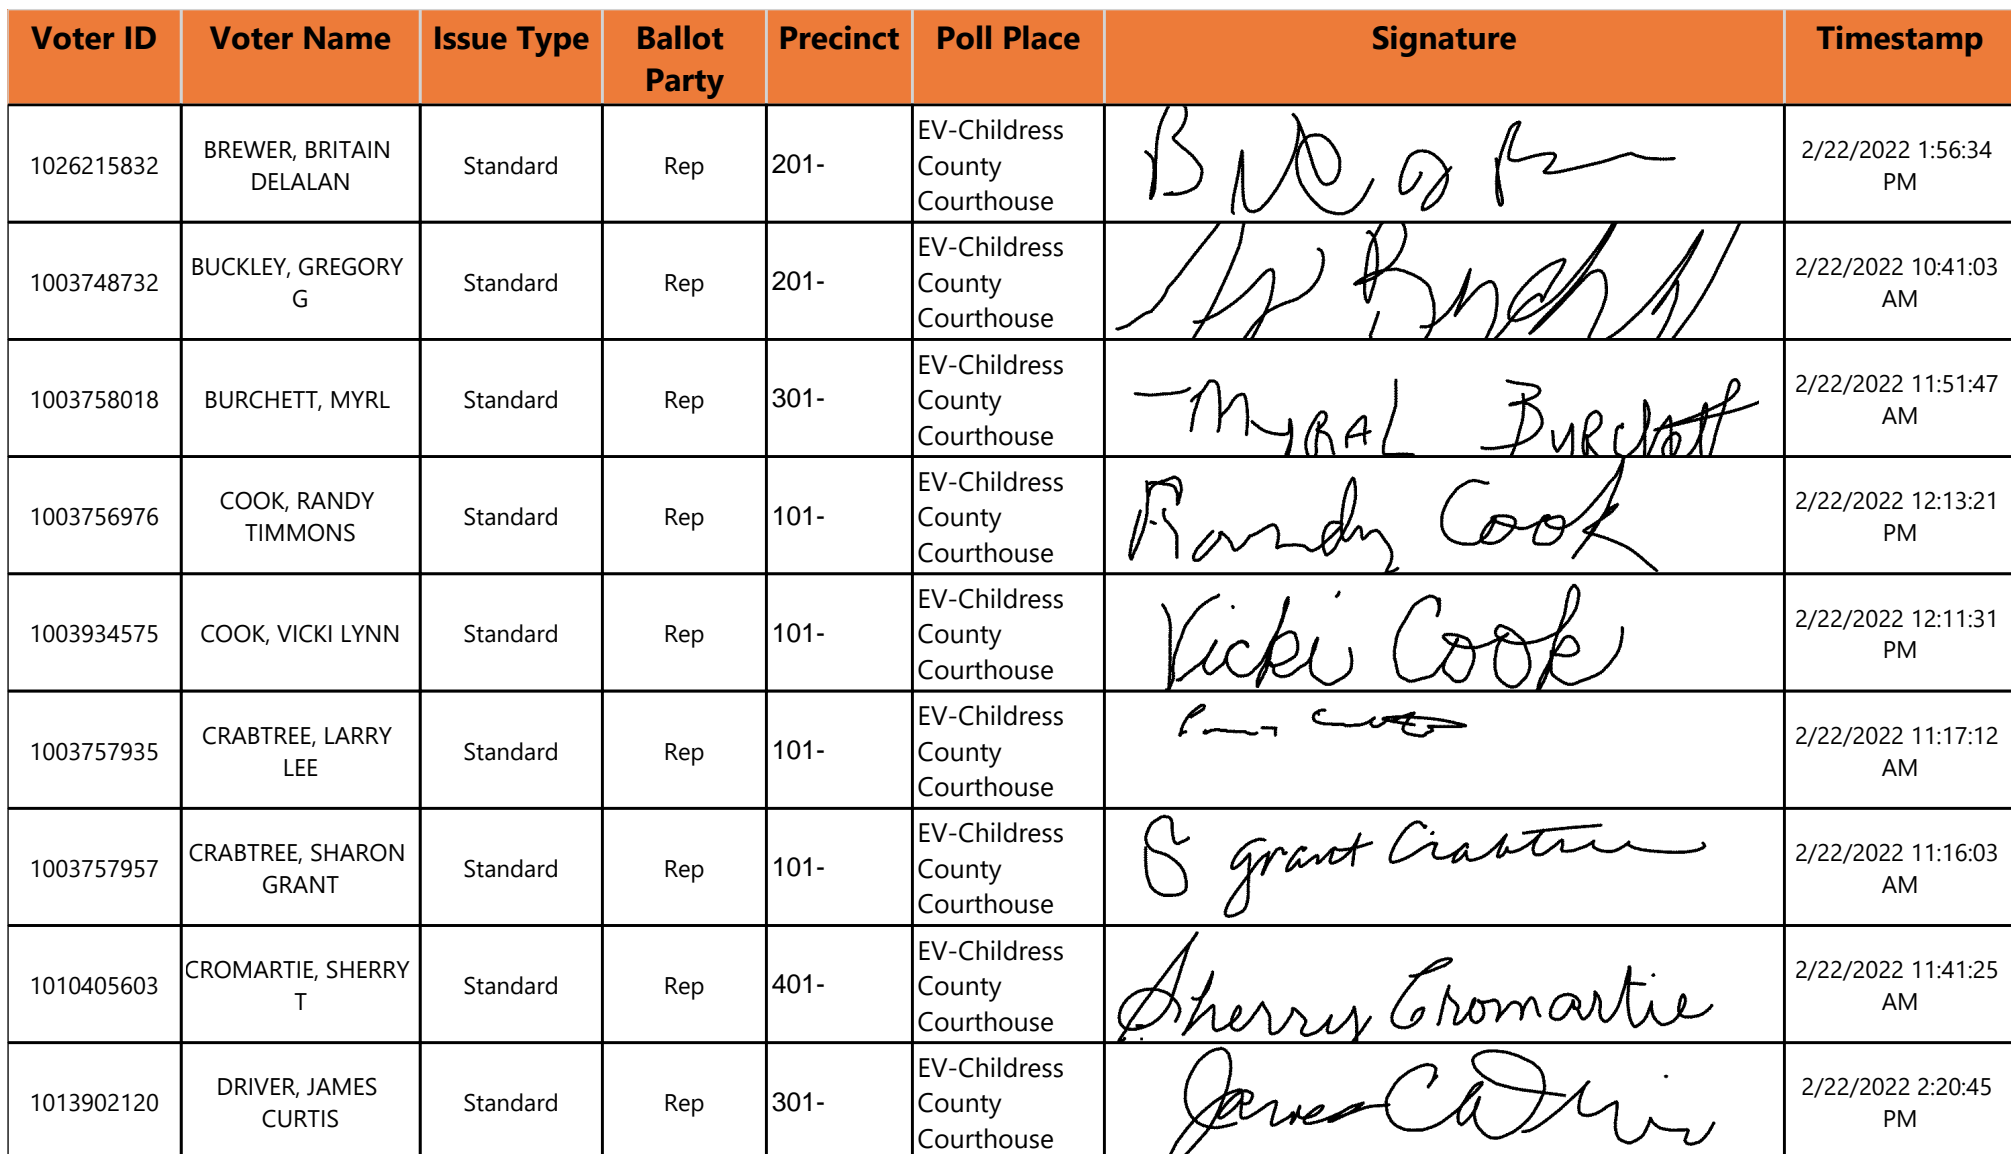 Voter ID Voter Name Issue Type Ballot Party Precinct Poll Place Signature Timestamp
1026215832 BREWER, BRITAIN DELALAN Standard Rep 201- EV-Childress County Courthouse 2/22/2022 1:56:34 PM
1003748732 BUCKLEY, GREGORY G Standard Rep 201- EV-Childress County Courthouse 2/22/2022 10:41:03 AM
1003758018 BURCHETT, MYRL Standard Rep 301- EV-Childress County Courthouse MYRAL BURCHETT 2/22/2022 11:51:47 AM
1003756976 COOK, RANDY TIMMONS Standard Rep 101- EV-Childress County Courthouse Randy Cook 2/22/2022 12:13:21 PM
1003934575 COOK, VICKI LYNN Standard Rep 101- EV-Childress County Courthouse Vicki Cook 2/22/2022 12:11:31 PM
1003757935 CRABTREE, LARRY LEE Standard Rep 101- EV-Childress County Courthouse 2/22/2022 11:17:12 AM
1003757957 CRABTREE, SHARON GRANT Standard Rep 101- EV-Childress County Courthouse S Grant Crabtree 2/22/2022 11:16:03 AM
1010405603 CROMARTIE, SHERRY T Standard Rep 401- EV-Childress County Courthouse Sherry Cromartie 2/22/2022 11:41:25 AM
1013902120 DRIVER, JAMES CURTIS Standard Rep 301- EV-Childress County Courthouse James 2/22/2022 2:20:45 PM